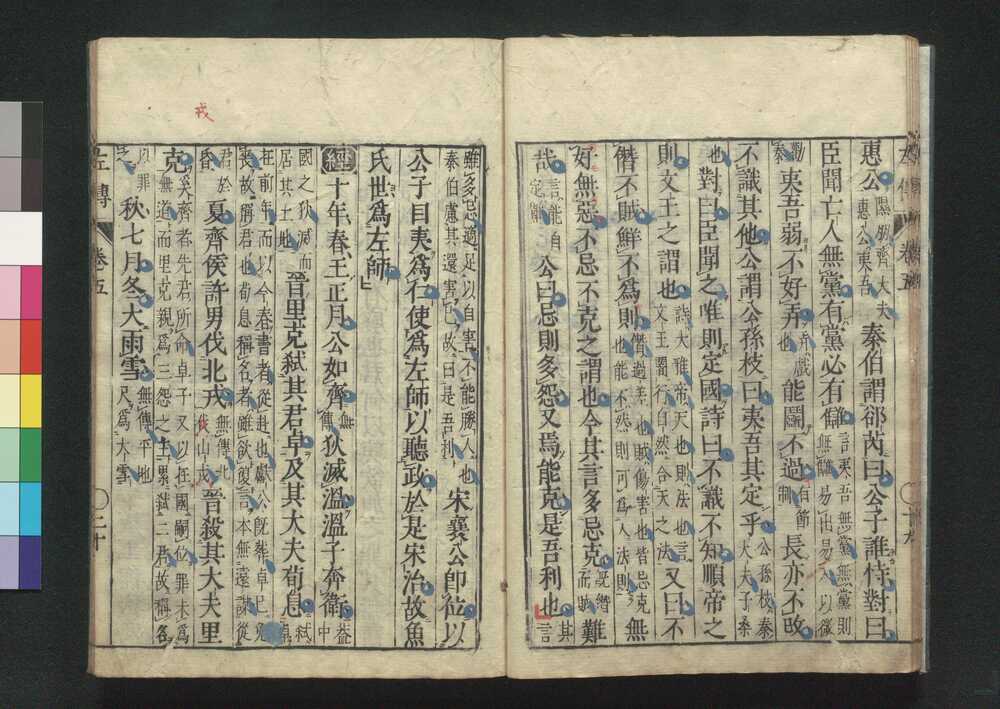 惠公隰朋齊大夫惠公夷吾秦伯謂郤芮曰公子誰恃對曰
臣聞亡人無黨有黨必有讎言夷吾無黨無黨則無讎易出易入以微
勸秦夷吾弱不好弄弄戲也能鬬不過有節制長亦不改
不識其他公謂公孫枝曰夷吾其定乎公孫枝秦大夫子桑
也對曰臣聞之唯則定國詩曰不識不知順帝之
則文王之謂也詩大雅帝天也則法也言文王闇行自然合天之法又曰不
僭不賊鮮不爲則僭過差也賊傷害也皆忌克也能不然則可爲人法則無
好無惡不忌不克之謂也今其言多忌克既僭而賊難
哉言能自定難公曰忌則多怨又焉能克是吾利也其言
左傳 卷五 十九
戎
雖多忌適足以自害不能勝人也秦伯慮其還害己故曰是吾利宋襄公卽位以
公子目夷爲仁使爲左師以聽政於是宋治故魚
氏世爲左師
經十年春王正月公如齊無傳狄滅溫溫子奔衛蓋中
國之狄滅而居其土地晉里克弑其君卓及其大夫荀息弑卓
在前年而以今春書者從赴也獻公既葬卓已免喪故稱君也荀息稱名者雖欲復言本無遠謀從
君於昏夏齊侯許男伐北戎無傳北戎山戎晉殺其大夫里
克奚齊者先君所命卓子又以在國嗣位罪未爲無道而里克親爲三怨之主累弑二君故稱名
以罪之秋七月冬大雨雪無傳平地尺爲大雪
左傳 卷五 二十